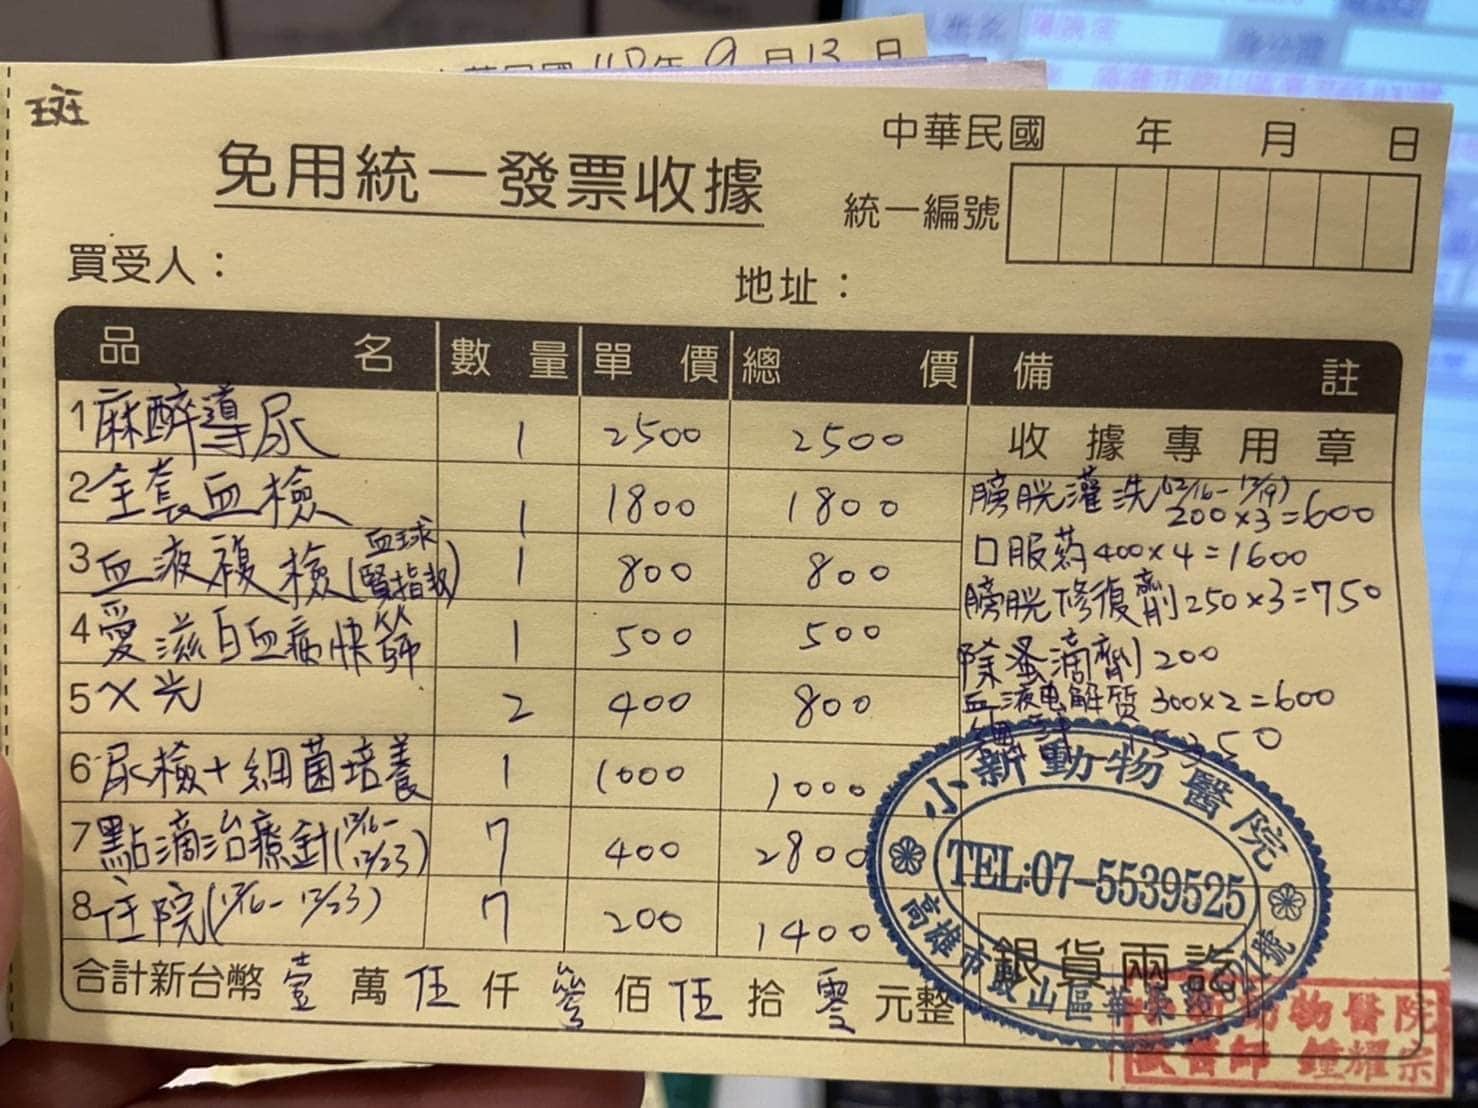 中華民國110年9月13日
斑
免用統一發票收據
中華民國 年 月 日
統一編號
買受人：
地址：
品名 數量 單價 總價 備註
1 麻醉導尿 1 2500 2500
2 全套血檢 1 1800 1800
3 血液複檢(血球 腎指數) 1 800 800
4 愛滋白血病快篩 1 500 500
5 X光 2 400 800
6 尿檢+細菌培養 1 1000 1000
7 點滴治療針(12/16-12/23) 7 400 2800
8 住院(12/16-12/23) 7 200 1400
收據專用章
膀胱灌洗(12/16-12/19)
200×3=600
口服药400×4=1600
膀胱修復劑250×3=750
除蚤滴劑200
血液电解質300×2=600
15350
合計新台幣壹萬伍仟叁佰伍拾零元整
小新動物醫院
TEL:07-5539525
高雄市鼓山區華榮路
銀貨兩訖
小新動物醫院
獸醫師 鍾耀宗